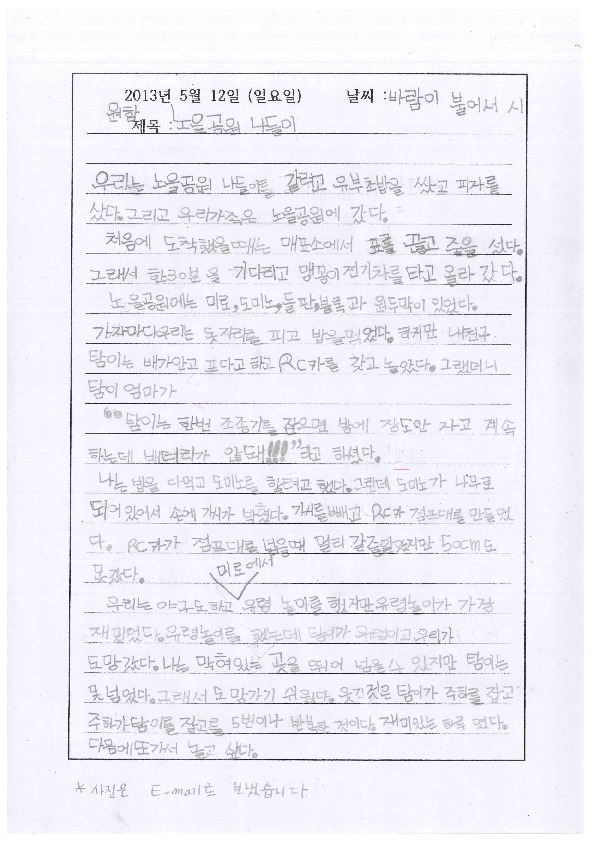 2013년 5월 12일 (일요일) 날씨 : 바람이 불어서 시
원함
제목 : 노을공원 나들이
우리는 노을공원 나들이를 갈려고 유부초밥을 쌌고 피자를
샀다. 그리고 우리가족은 노을공원에 갔다.
처음에 도착했을때는 매표소에서 표를 끊고 줄을 섰다.
그래서 한30분을 기다리고 맹꽁이전기차를 타고 올라갔다.
노을공원에는 미로, 도미노, 들판, 블록과 원두막이 있었다.
가자마다우리는 돗자리를 피고 밥을먹었다. 하지만 내친구
탐이는 배가안고프다고하고 RC카를 갖고 놀았다. 그랬더니
탐이엄마가
"탐이는 한번 조종기를 잡으면 밤에 잠도안 자고 계속
하는데 배터리가 않돼!!!"라고 하셨다.
나는 밥을 다먹고 도미노를 할려고 했다. 그런데 도미노가 나무로
되어 있어서 손에 가시가 박혔다. 가시를빼고 RC카 점프대를 만들었
다. RC카가 점프대를 넘을때 멀리 갈줄알았지만 50cm도
못갔다.
미로에서
우리는 야구도하고 유령 놀이를 했지만유령놀이가 가장
재미있었다. 유령놀이를 했는데 탐이가 유령이고 우리가
도망갔다. 나는 막혀있는 곳을 뛰어 넘을수 있지만 탐이는
못넘었다. 그래서 도망가기 쉬웠다. 웃긴것은 탐이가 주하를 잡고
주하가탐이를 잡고를 5번이나 반복한 것이다. 재미있는 하루 였다.
다음에또가서 놀고 싶다.
* 사진은 E-mail로 보냈습니다